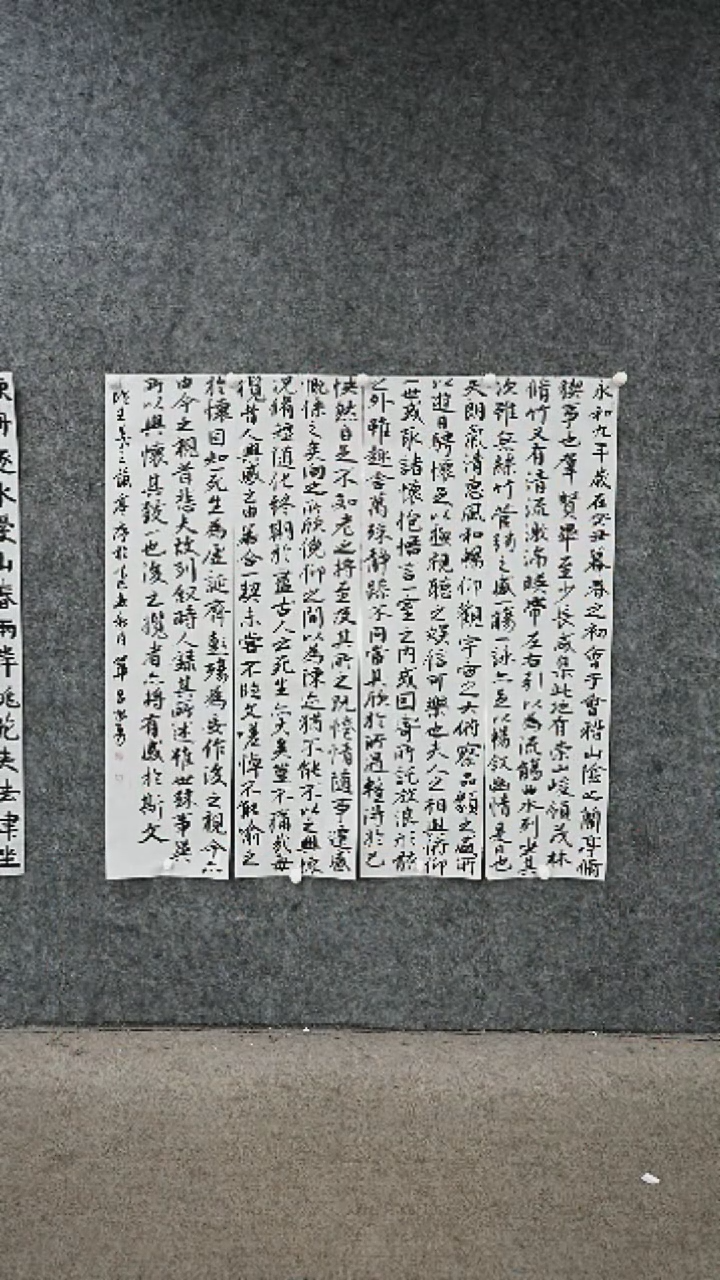 永和九年歲在癸丑暮春之初會于會稽山陰之蘭亭脩
禊事也群賢畢至少長咸集此地有崇山峻領茂林
脩竹又有清流激湍暎帶左右引以為流觴曲水列坐其
次雖無絲竹管絃之盛一觴一詠亦足以暢敘幽情是日也
天朗氣清惠風和暢仰觀宇宙之大俯察品類之盛所
以遊目騁懷足以極視聽之娛信可樂也夫人之相與俯仰
一世或取諸懷抱悟言一室之內或因寄所託放浪形骸
之外雖趣舍萬殊靜躁不同當其欣於所遇暫得於己
怏然自足不知老之將至及其所之既惓情隨事遷感
慨係之矣向之所欣俛仰之間以為陳迹猶不能不以之興懷
況脩短隨化終期於盡古人云死生亦大矣豈不痛哉每
攬昔人興感之由若合一契未嘗不臨文嗟悼不能喻之
於懷固知死生為虛誕齊彭殤為妄作後之視今亦
由今之視昔悲夫故列敘時人錄其所述雖世殊事異
所以興懷其致一也後之攬者亦將有感於斯文
臨王羲之蘭亭序於
永舟逐水愛山春兩岸桃花夾去津坐